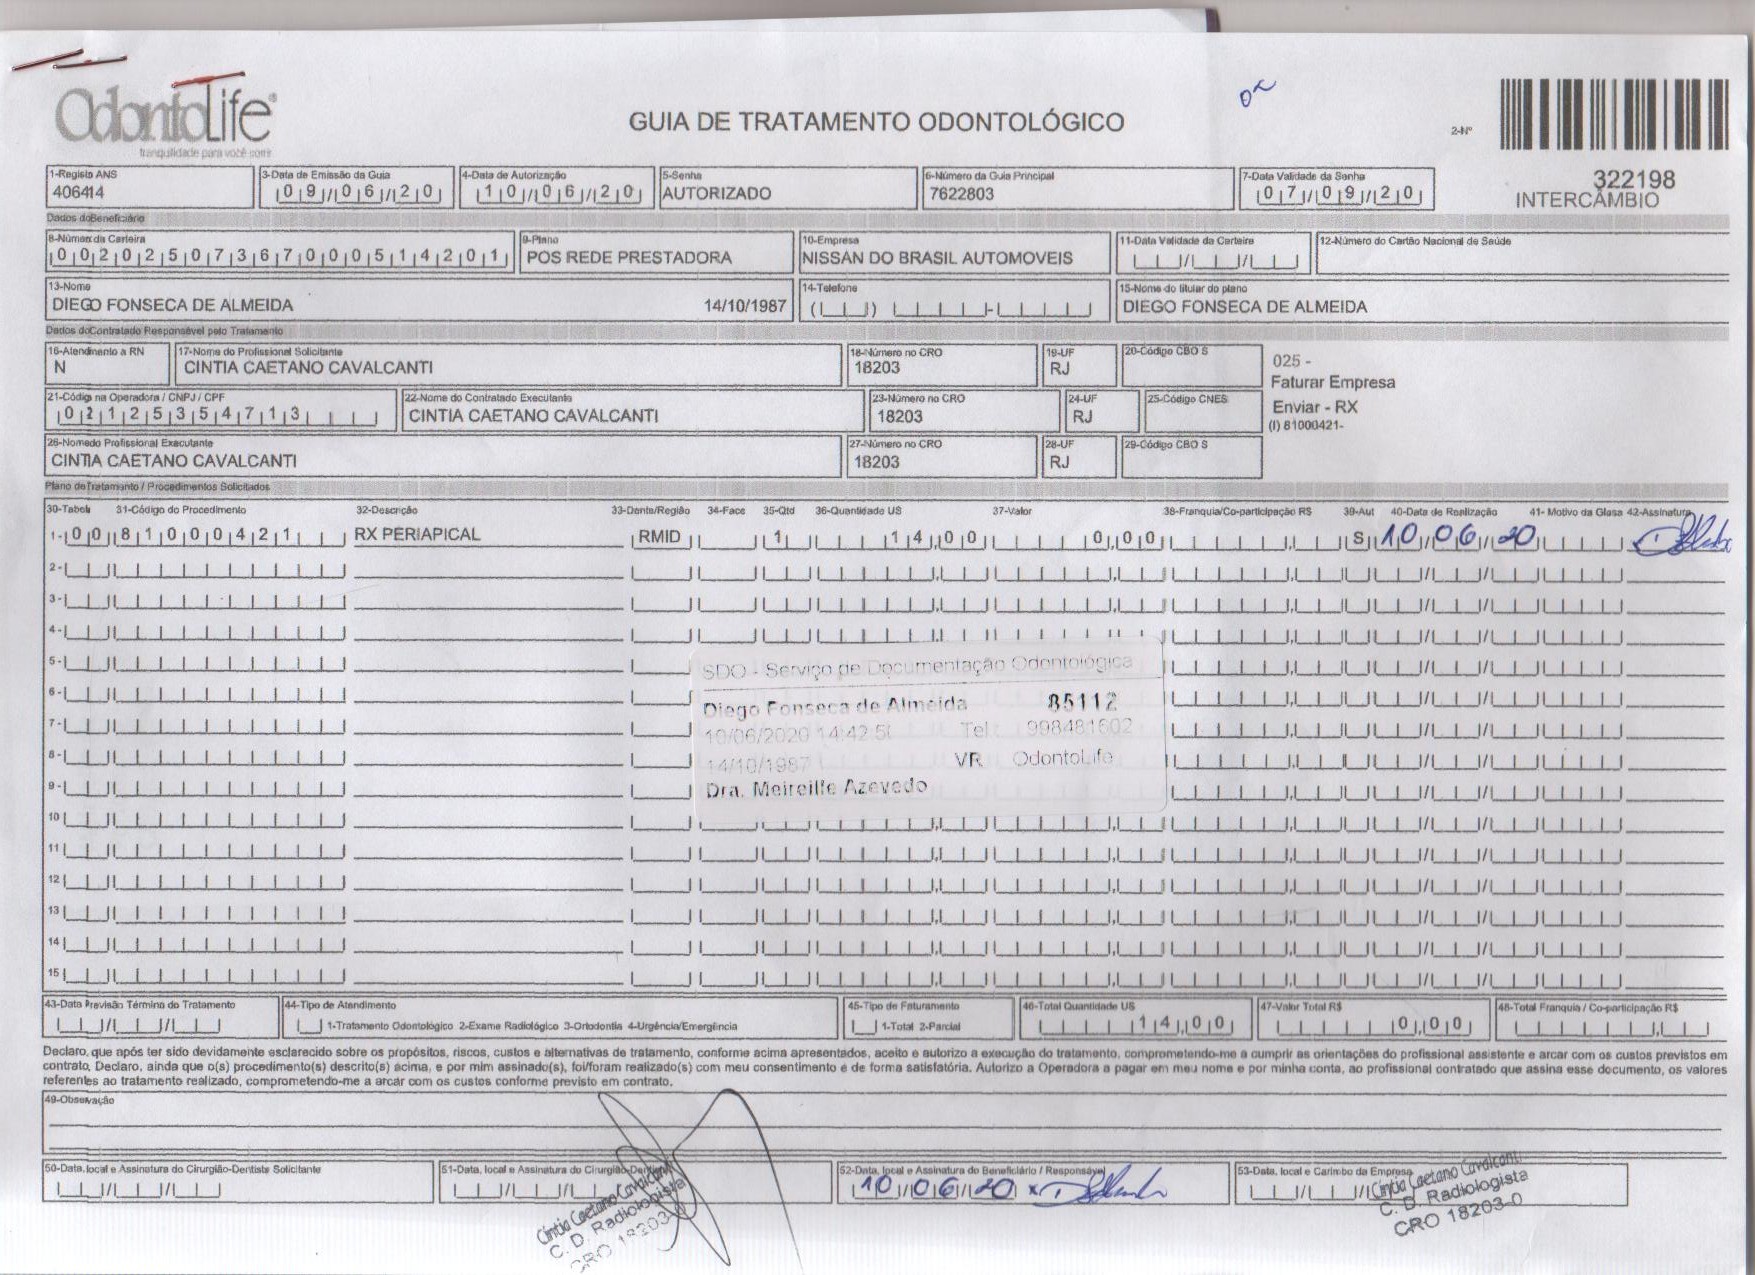 OdontoLife®
tranquilidade para você sorrir
GUIA DE TRATAMENTO ODONTOLÓGICO
ok
2-Nº
322198
INTERCÂMBIO
1-Registo ANS
406414
3-Data de Emissão da Guia
09/06/20
4-Data de Autorização
10/06/20
5-Senha
AUTORIZADO
6-Número da Guia Principal
7622803
7-Data Validade da Senha
07/09/20
Dados do Beneficiário
8-Número da Carteira
00202507367000514201
9-Plano
POS REDE PRESTADORA
10-Empresa
NISSAN DO BRASIL AUTOMOVEIS
11-Data Validade da Carteira
12-Número do Cartão Nacional de Saúde
13-Nome
DIEGO FONSECA DE ALMEIDA 14/10/1987
14-Telefone
15-Nome do titular do plano
DIEGO FONSECA DE ALMEIDA
Dados do Contratado Responsável pelo Tratamento
16-Atendimento a RN
N
17-Nome do Profissional Solicitante
CINTIA CAETANO CAVALCANTI
18-Número no CRO
18203
19-UF
RJ
20-Código CBO S
025 -
Faturar Empresa
Enviar - RX
(I) 81000421-
21-Código na Operadora / CNPJ / CPF
02125354713
22-Nome do Contratado Executante
CINTIA CAETANO CAVALCANTI
23-Número no CRO
18203
24-UF
RJ
25-Código CNES
26-Nome do Profissional Executante
CINTIA CAETANO CAVALCANTI
27-Número no CRO
18203
28-UF
RJ
29-Código CBO S
Plano de Tratamento / Procedimentos Solicitados
30-Tabela 31-Código do Procedimento 32-Descrição 33-Dente/Região 34-Face 35-Qtd 36-Quantidade US 37-Valor 38-Franquia/Co-participação R$ 39-Aut 40-Data de Realização 41- Motivo da Glosa 42-Assinatura
1- 00 81000421 RX PERIAPICAL RMID 1 14,00 0,00 S 10/06/20
2-
3-
4-
5-
6-
7-
8-
9-
10
11
12
13
14
15
SDO - Serviço de Documentação Odontológica
Diego Fonseca de Almeida 85112
10/06/2020 14:42:5 Tel : 998481602
14/10/1987 VR OdontoLife
Dra. Meireille Azevedo
43-Data Previsão Término do Tratamento
44-Tipo de Atendimento
1-Tratamento Odontológico 2-Exame Radiológico 3-Ortodontia 4-Urgência/Emergência
45-Tipo de Faturamento
1-Total 2-Parcial
46-Total Quantidade US
14,00
47-Valor Total R$
0,00
48-Total Franquia / Co-participação R$
Declaro, que após ter sido devidamente esclarecido sobre os propósitos, riscos, custos e alternativas de tratamento, conforme acima apresentados, aceito e autorizo a execução do tratamento, comprometendo-me a cumprir as orientações do profissional assistente e arcar com os custos previstos em
contrato, Declaro, ainda que o(s) procedimento(s) descrito(s) acima, e por mim assinado(s), foi/foram realizado(s) com meu consentimento e de forma satisfatória. Autorizo a Operadora a pagar em meu nome e por minha conta, ao profissional contratado que assina esse documento, os valores
referentes ao tratamento realizado, comprometendo-me a arcar com os custos conforme previsto em contrato.
49-Observação
50-Data, local e Assinatura do Cirurgião-Dentista Solicitante
51-Data, local e Assinatura do Cirurgião-Dentista
52-Data, local e Assinatura do Beneficiário / Responsável
10/06/20 x
53-Data, local e Carimbo da Empresa
Cintia Caetano Cavalcanti
C. D. Radiologista
CRO 18203-0
Cintia Caetano Cavalcanti
C. D. Radiologista
CRO 18203-0